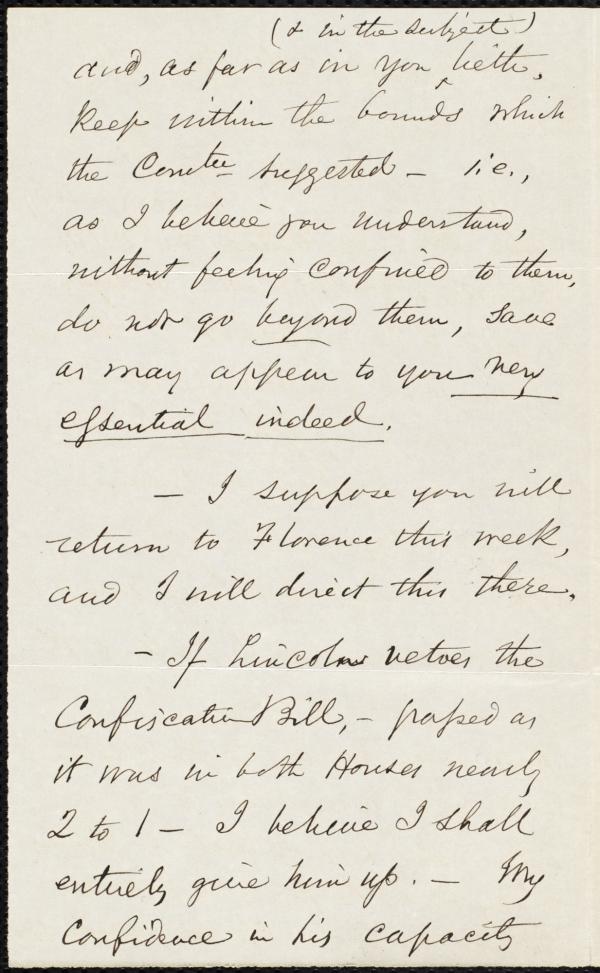 (& in the subject)
and, as far as in you lieth,
keep within the bounds which
the Comtee suggested – i.e.,
as I believe you understand,
without feeling confined to them,
do not go beyond them, save
as may appear to you very
essential indeed.
– I suppose you will
return to Florence this week,
and I will direct this there.
– If Lincoln vetoes the
Confiscation Bill, – passed as
it was in both Houses nearly
2 to 1 – I believe I shall
entirely give him up. – My
confidence in his capacity